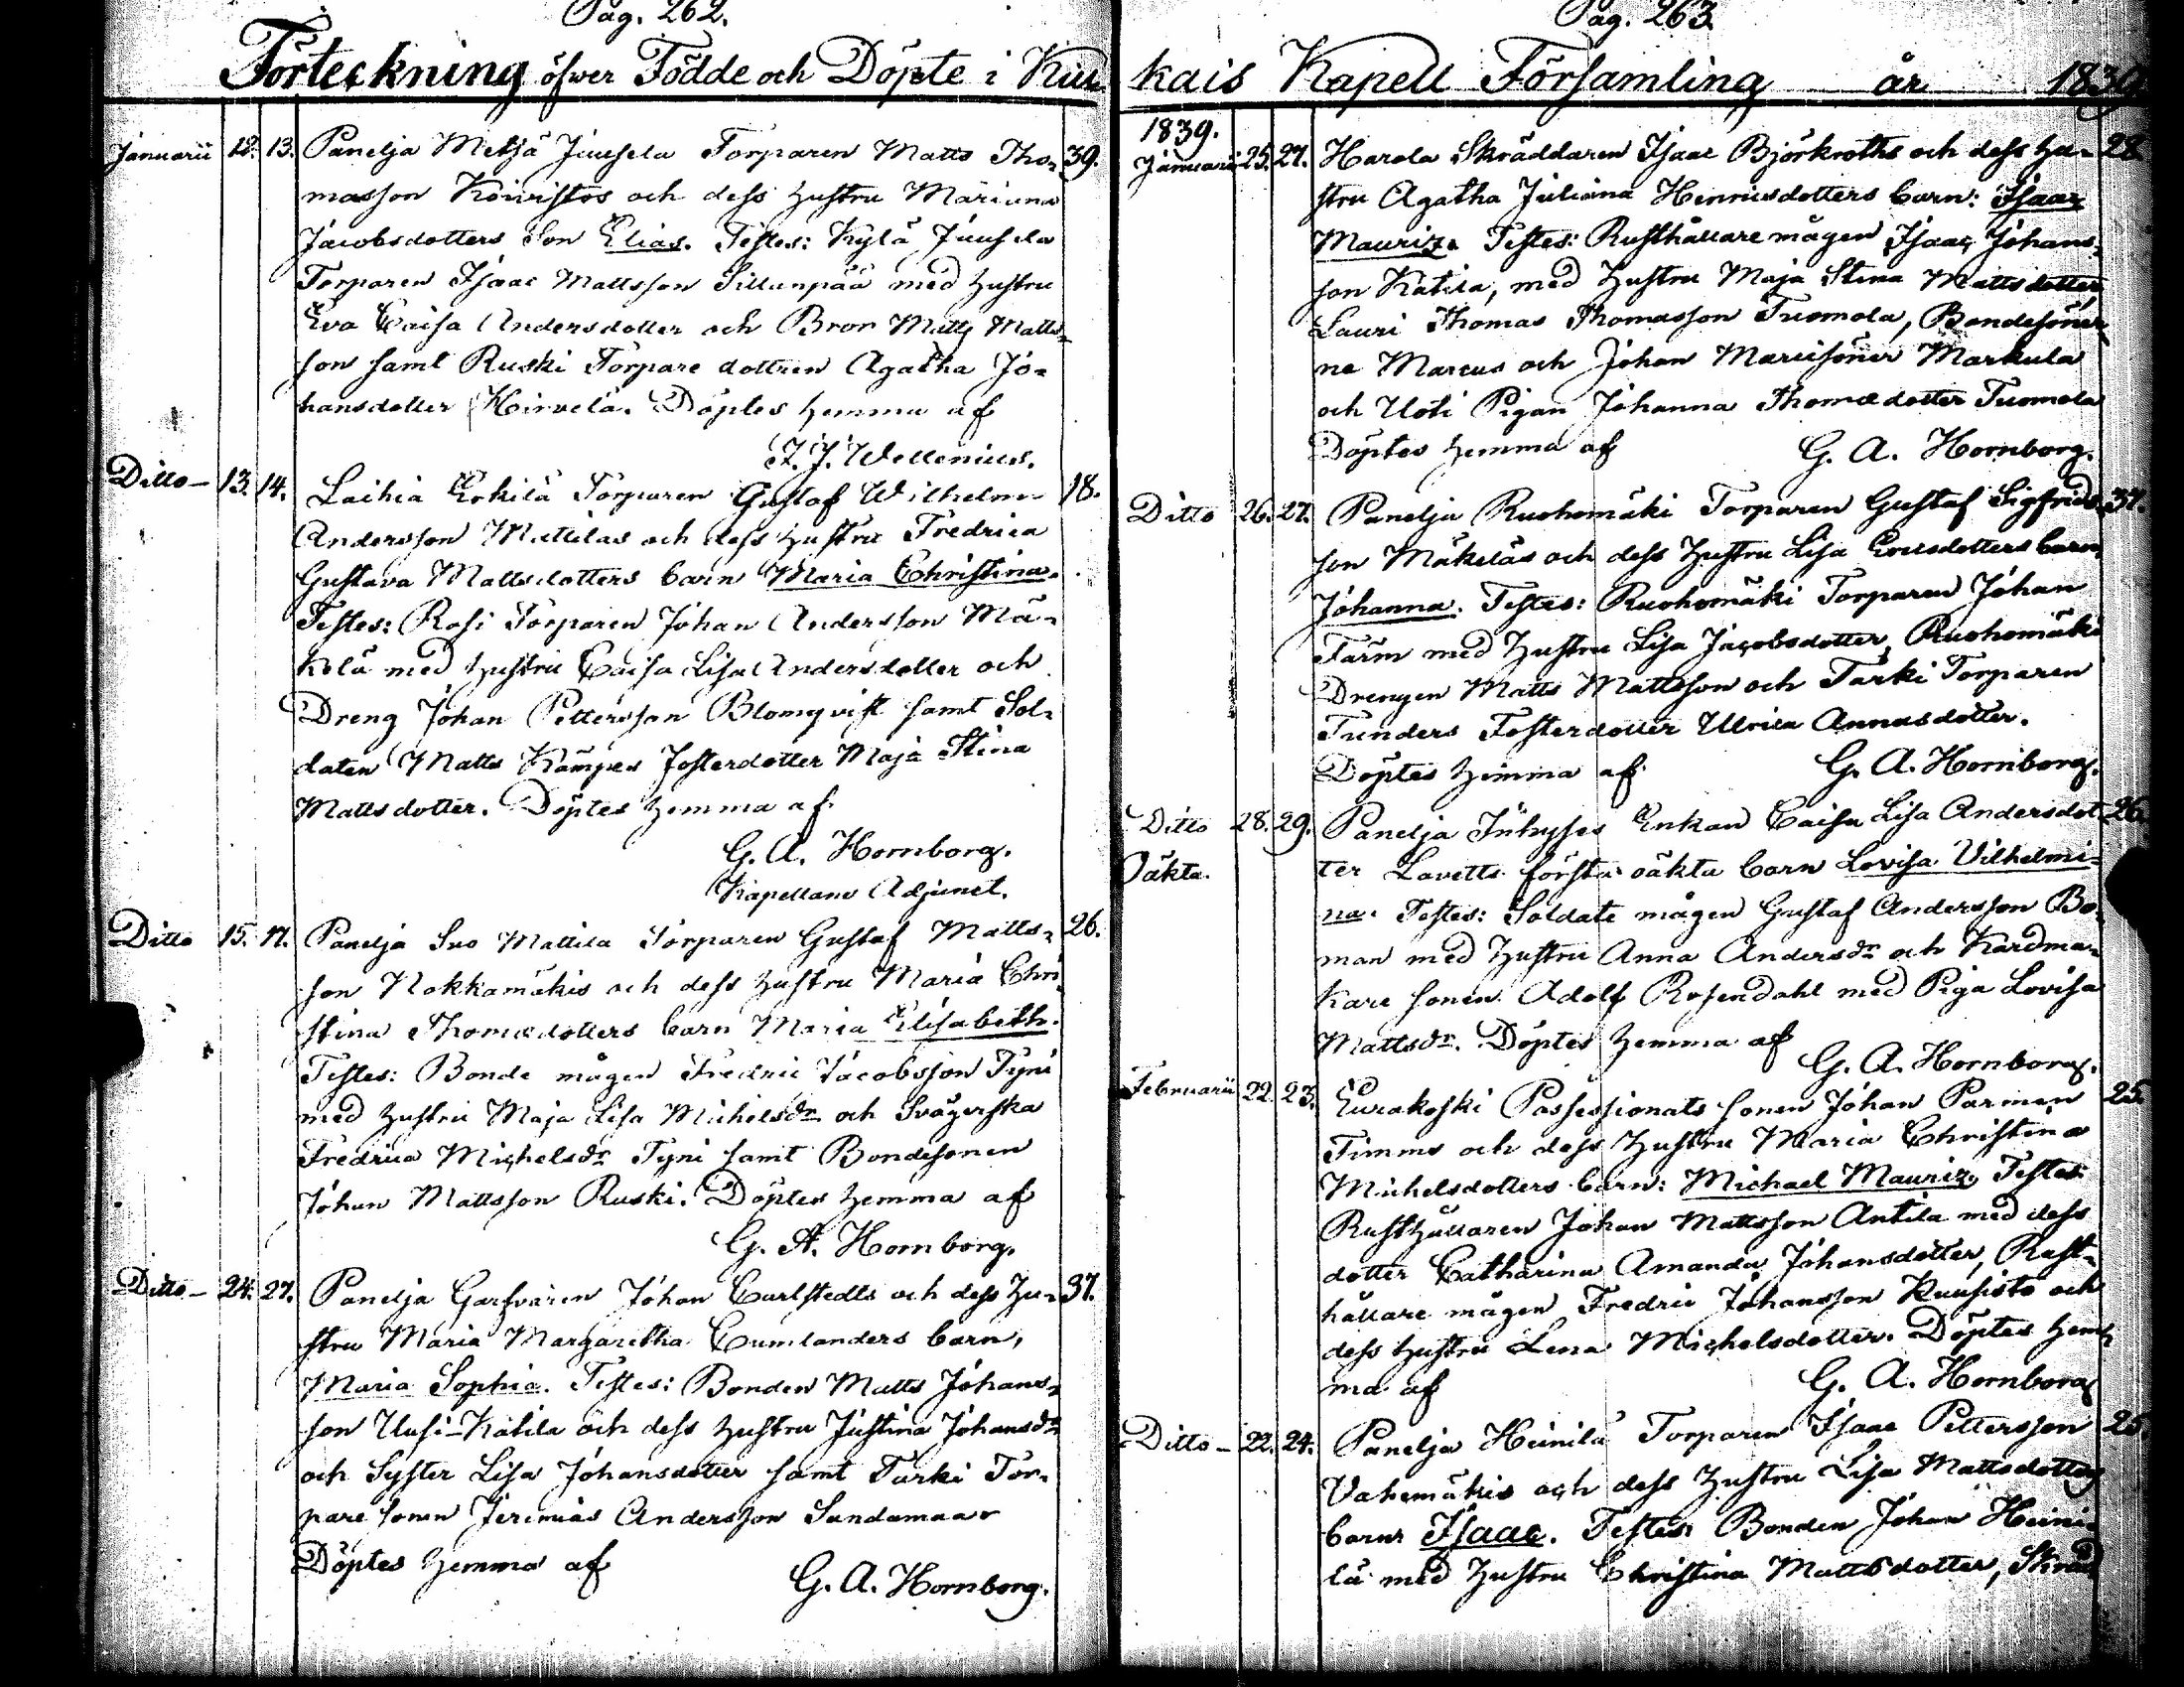 Pag. 262.
Förteckning öfwer Födde och Döpte i Kiu
Januarii 12. 13. Panelja Metsä Juusela Torparen Matts Tho- 39.
masson Koivistos och dess Hustru Mariana
Jacobsdotters Son Elias. Testes: Kylä Juusela
Torparen Isaac Mattsson Sillanpää med Hustru
Eva Caisa Andersdotter och Bror Matts Matts-
son samt Ruski Torpare dottren Agatha Jo-
hansdotter Hirvelä. Döptes hemma af
J. J. Wellenius.
Ditto 13. 14. Laihia Erkilä Torparen Gustaf Wilhelm 18.
Andersson Mattilas och dess Hustru Fredrica
Gustava Mattsdotters barn Maria Christina.
Testes: Rosi Torparen Johan Andersson Mä-
kelä med Hustru Caisa Lisa Andersdotter och
Dreng Johan Pettersson Blomqvist samt Sol-
daten Matts Kämpes fosterdotter Maja Stina
Mattsdotter. Döptes hemma af
G. A. Hornborg.
Kapellans Adjunct.
Ditto 15. 17. Panelja Suo Mattila Torparen Gustaf Matts- 26.
son Kokkamäkis och dess Hustru Maria Chri
stina Thomædotters barn Maria Elisabeth.
Testes: Bonde mågen Fredric Jacobsson Tyni
med Hustru Maja Lisa Michelsdr och Svägerska
Fredrica Michelsdr Tyni samt Bondesonen
Johan Mattsson Ruski. Döptes hemma af
G. A. Hornborg.
Ditto 24. 27. Panelja Garfvaren Johan Carlstedts och dess Hu- 37.
stru Maria Margaretha Cumlanders barn,
Maria Sophia. Testes: Bonden Matts Johans-
son Uusi-Katila och dess Hustru Justina Johansdr
och Syster Lisa Johansdotter samt Turki Tor-
pare sonen Jeremias Andersson Sandamaa
Döptes hemma af
G. A. Hornborg.
Pag. 263.
kais Kapell Församling år 1839.
1839.
Januarii 25. 27. Harola Skräddaren Isaac Björkroths och dess Hu- 28.
stru Agatha Juliana Henricsdotters barn: Isaac
Mauriz. Testes: Rusthållare mågen Isaac Johans-
son Katila, med Hustru Maja Stina Mattsdotter
Lauri Thomas Thomasson Tuomola, Bondesöner
ne Marcus och Johan Marcisöner Markula
och Uoti Pigan Johanna Thomædotter Tuomola
Döptes hemma af G. A. Hornborg.
Ditto 26. 27. Panelja Ruohomäki Torparen Gustaf Sigfrids 37.
son Mäkeläs och dess Hustru Lisa Ericsdotters barn
Johanna. Testes: Ruohomäki Torparen Johan
Färm med Hustru Lisa Jacobsdotter, Ruohomäki
Drengen Matts Mattsson och Turki Torparen
Tunders Fosterdotter Ulrica Annasdotter.
Döptes hemma af G. A. Hornborg.
Ditto 28. 29. Panelja Inhyses Enkan Caisa Lisa Andersdot- 26.
Oäkta. ter Lavetts första oäkta barn Lovisa Vilhelmi-
na. Testes: Soldate mågen Gustaf Andersson Bo-
man med Hustru Anna Andersdr och Kardma-
kare sonen Adolf Rosendahl med Piga Lovisa
Mattsdr. Döptes hemma af
G. A. Hornborg.
Februarii 22. 23. Eurakoski Possessionats sonen Johan Parman 25.
Timms och dess Hustru Maria Christina
Michelsdotters barn: Michael Mauriz. Testes:
Rusthållaren Johan Mattsson Antila med dess
dotter Catharina Amanda Johansdotter, Rust-
hållare mågen Fredric Johansson Kuusisto och
dess Hustru Lena Michelsdotter. Döptes hem-
ma af G. A. Hornborg
Ditto 22. 24. Panelja Heinilä Torparen Isaac Pettersson 25.
Vahemäkis och dess Hustru Lisa Mattsdotters
barn Isaac. Testes: Bonden Johan Heini-
lä med Hustru Christina Mattsdotter, Skräd